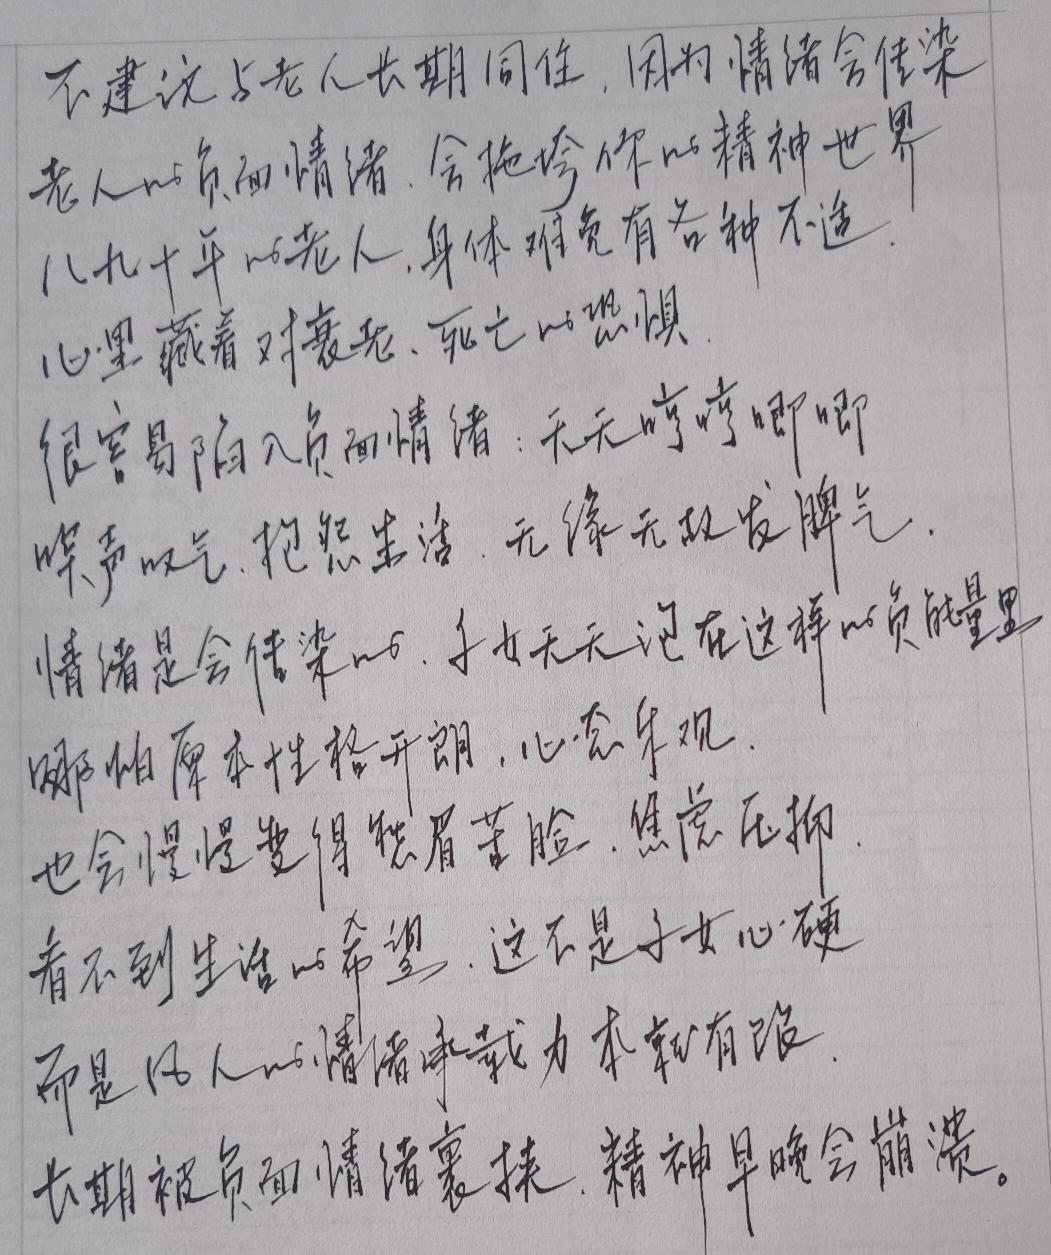 不建议与老人长期同住，因为情绪会传染
老人的负面情绪，会拖垮你的精神世界
八九十年的老人，身体难免有各种不适，
心里藏着对衰老、死亡的恐惧，
很容易陷入负面情绪：天天哼哼唧唧
唉声叹气，抱怨生活，无缘无故发脾气，
情绪是会传染的，子女天天泡在这样的负能量里
哪怕原本性格开朗，心态乐观，
也会慢慢变得愁眉苦脸，焦虑压抑，
看不到生活的希望，这不是子女心硬
而是凡人的情绪承载力本就有限，
长期被负面情绪裹挟，精神早晚会崩溃。